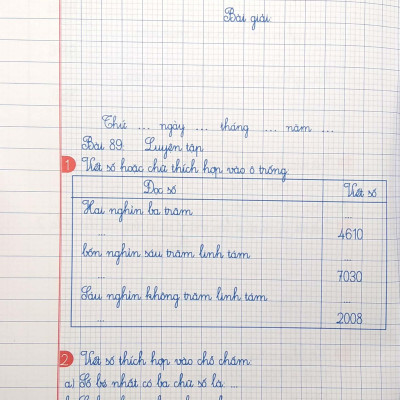 Bài giải
Thứ ... ngày ... tháng ... năm ...
Bài 89 Luyện tập
1 Viết số hoặc chữ thích hợp vào ô trống:
Đọc số Viết số
Hai nghìn ba trăm ...
... 4610
bốn nghìn sáu trăm linh tám ...
... 7030
Sáu nghìn không trăm linh tám ...
... 2008
2 Viết số thích hợp vào chỗ chấm:
a) Số bé nhất có ba chữ số là: ...